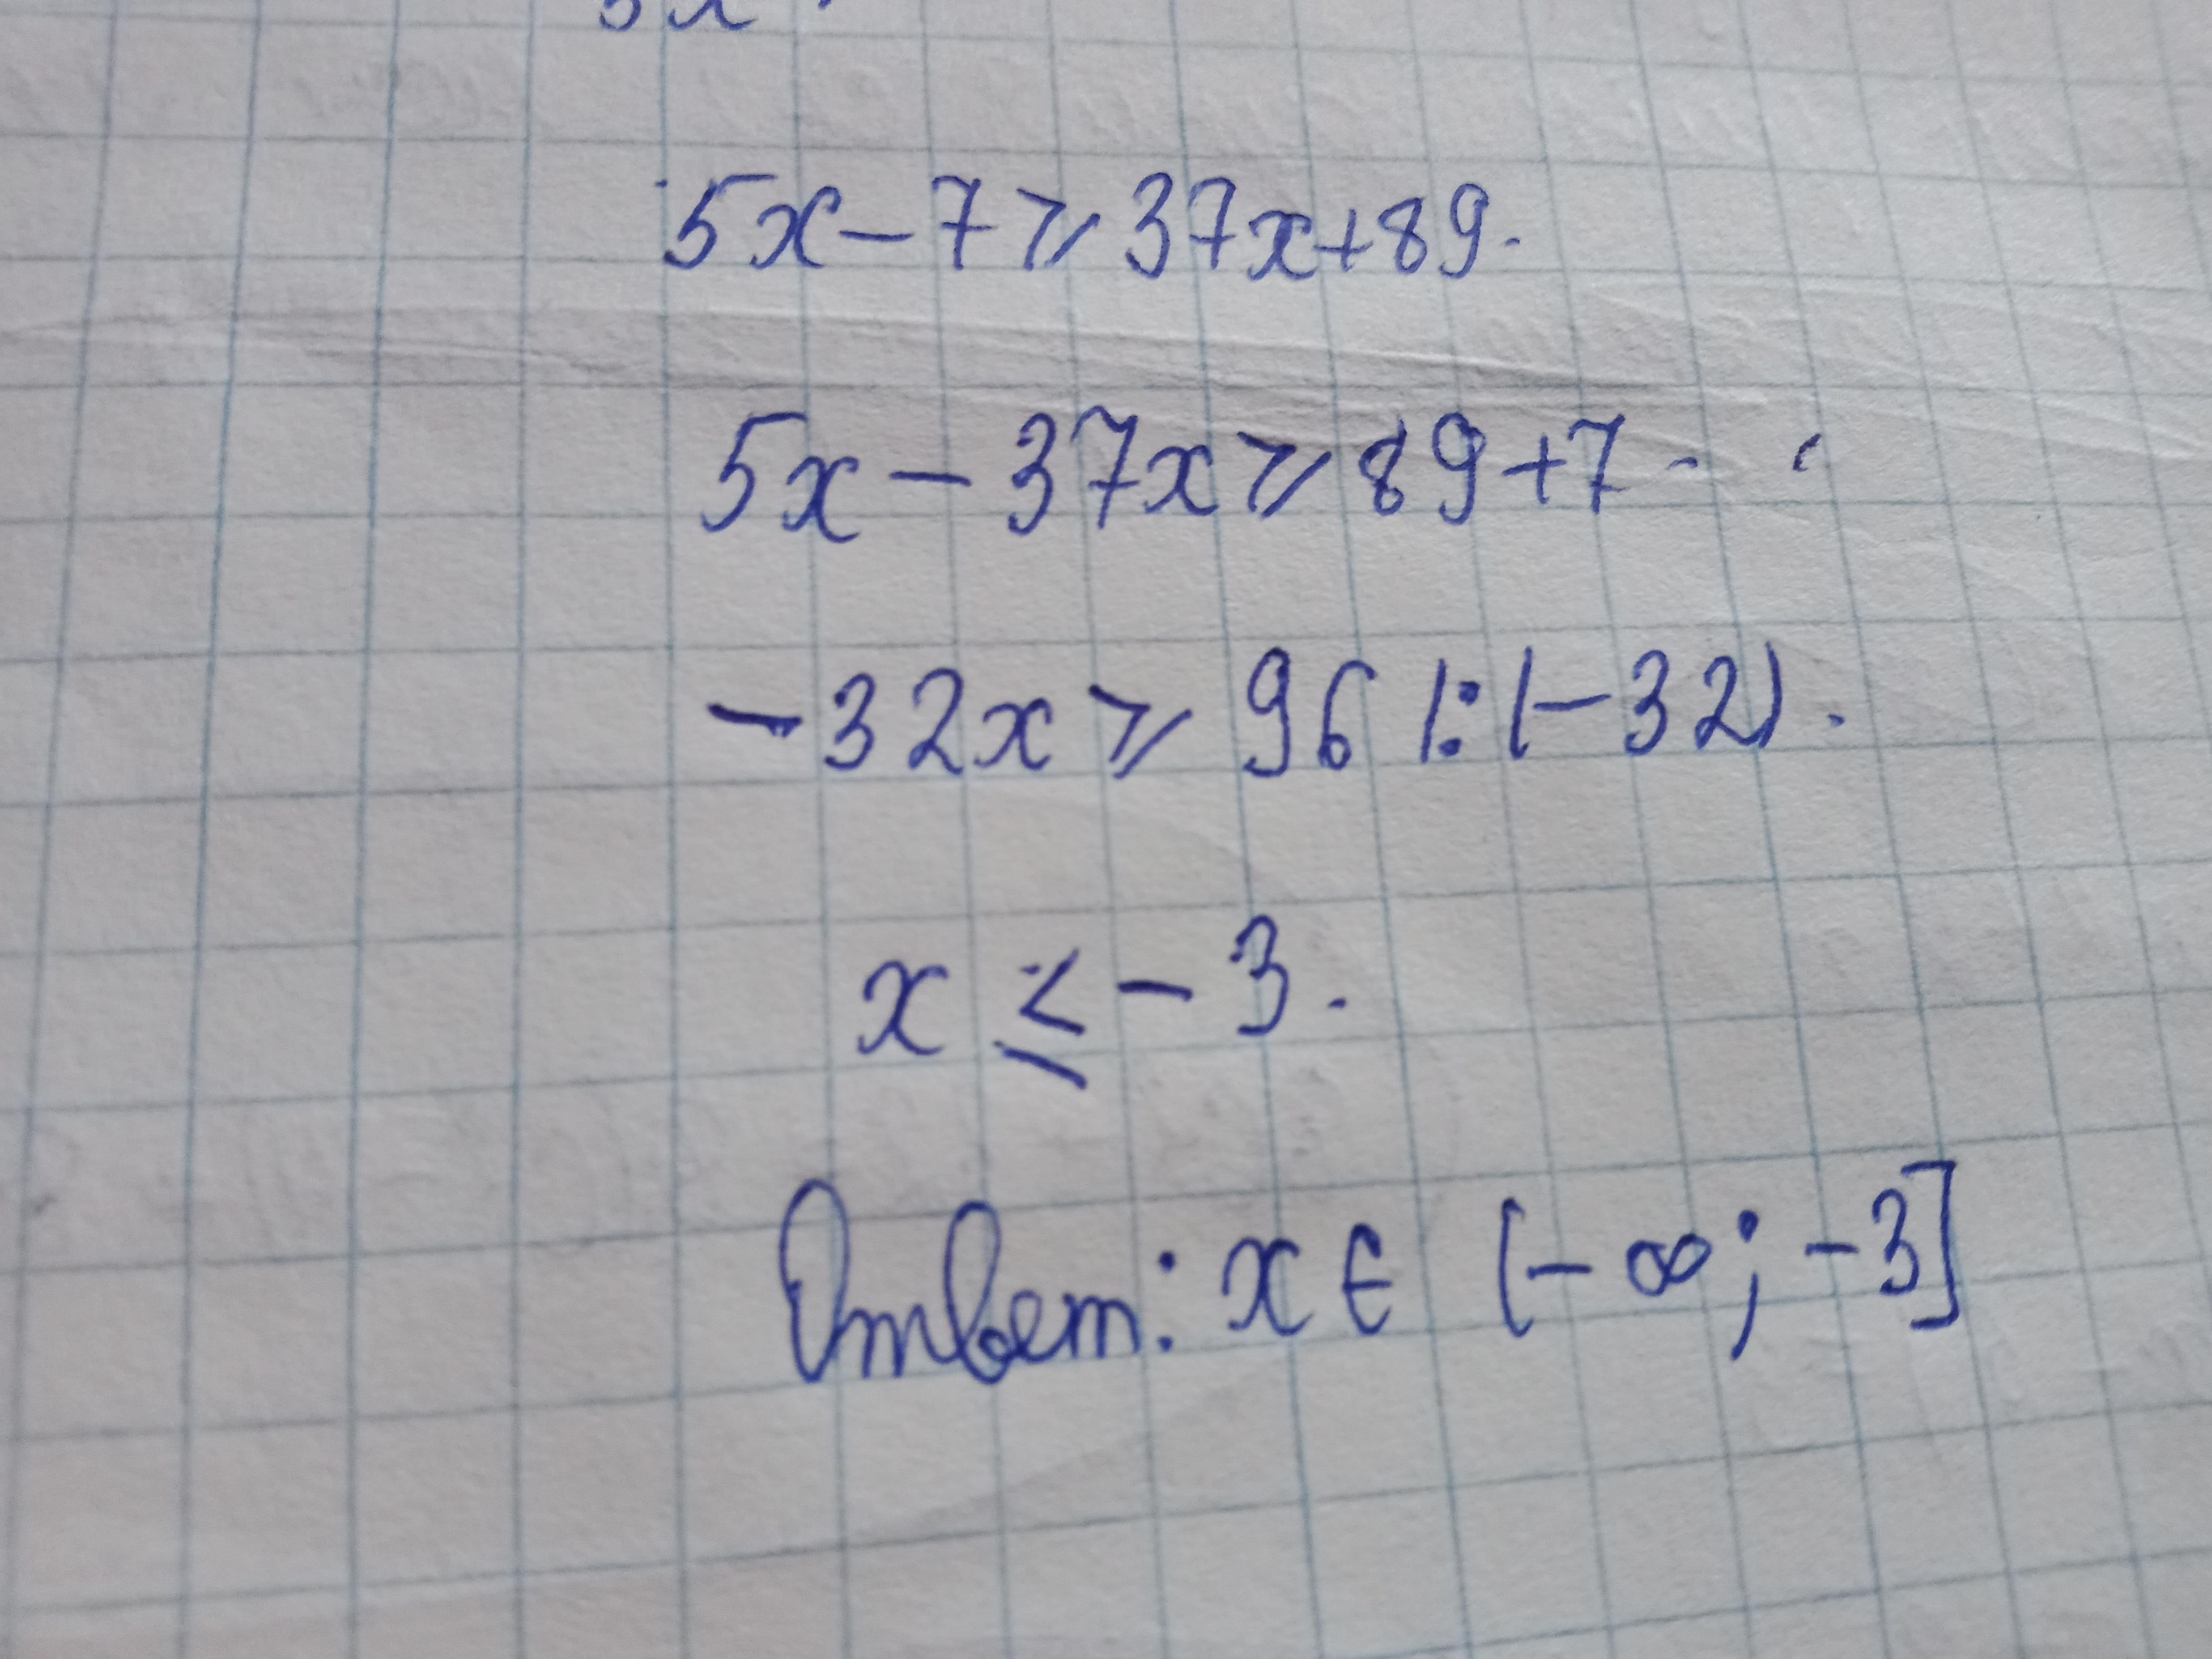 5x-7⩾37x+89.
5x-37x⩾89+7.
-32x⩾96 |:(-32).
x≤-3.
Ответ: x∈(-∞;-3]